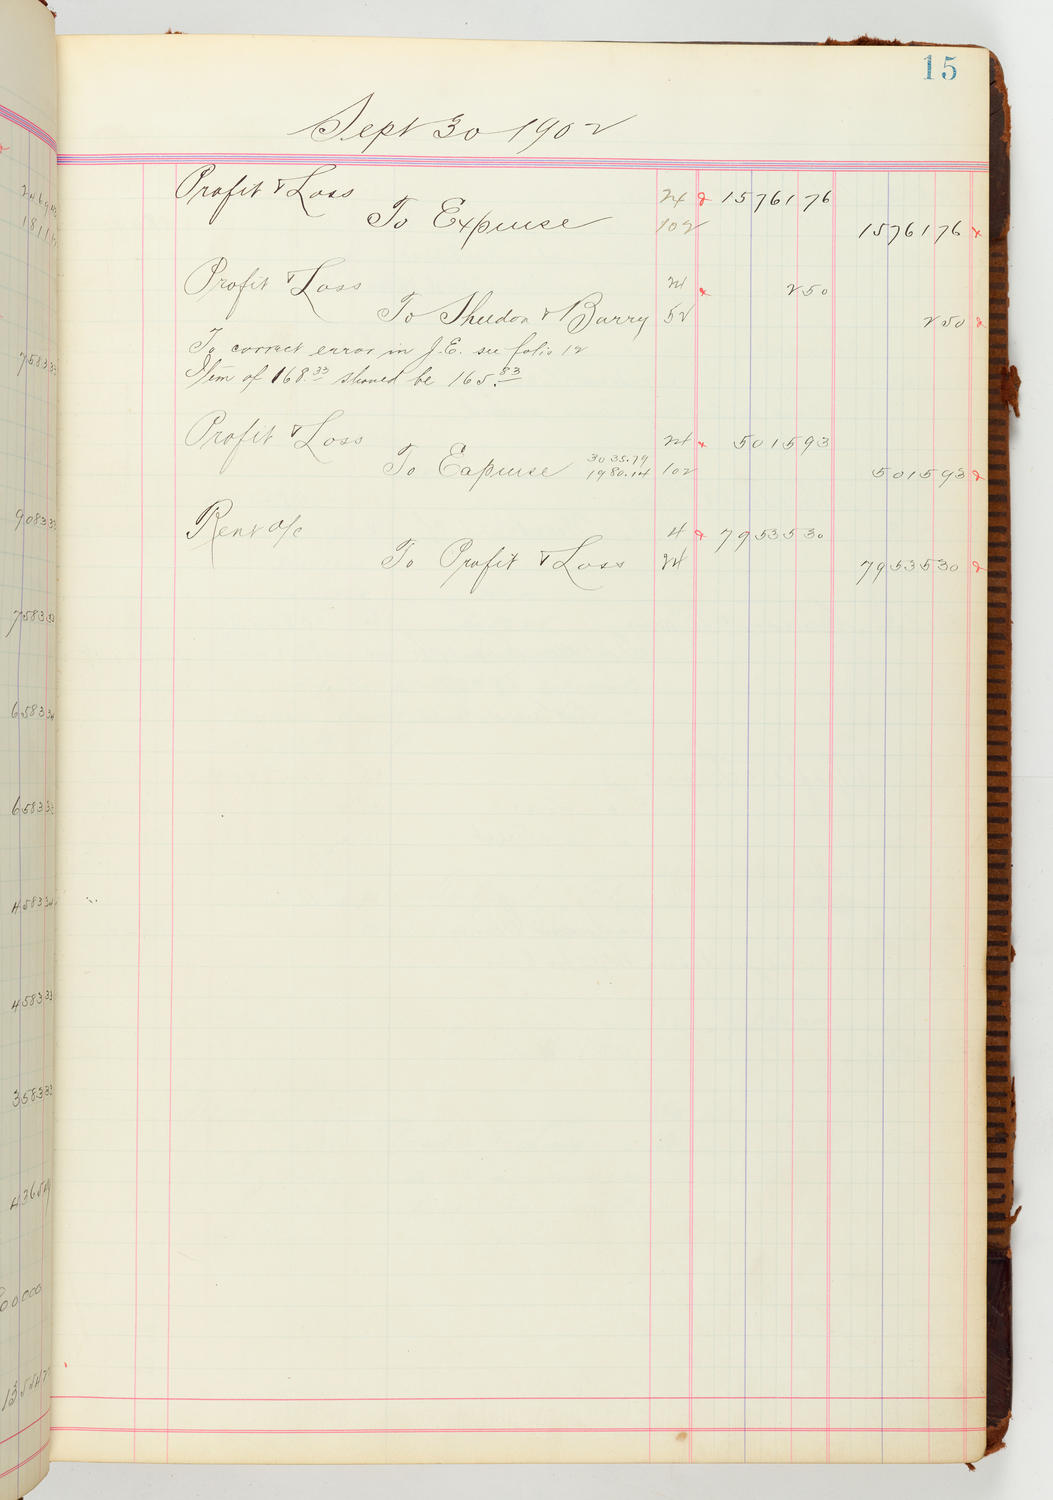 15
Sept 30 1902
Profit & Loss 24 1576176
To Expense 102 1576176
Profit & Loss 24 250
To Sheldon & Barry 52 250
To correct error in J.E. see folio 12
Item of 168.33 should be 165.83
Profit & Loss 24 501593
To Expense 3035.79 1980.14 102 501593
Rent a/c 4 7953530
To Profit & Loss 24 7953530
758333
908333
758333
658334
658333
458334
458333
358333